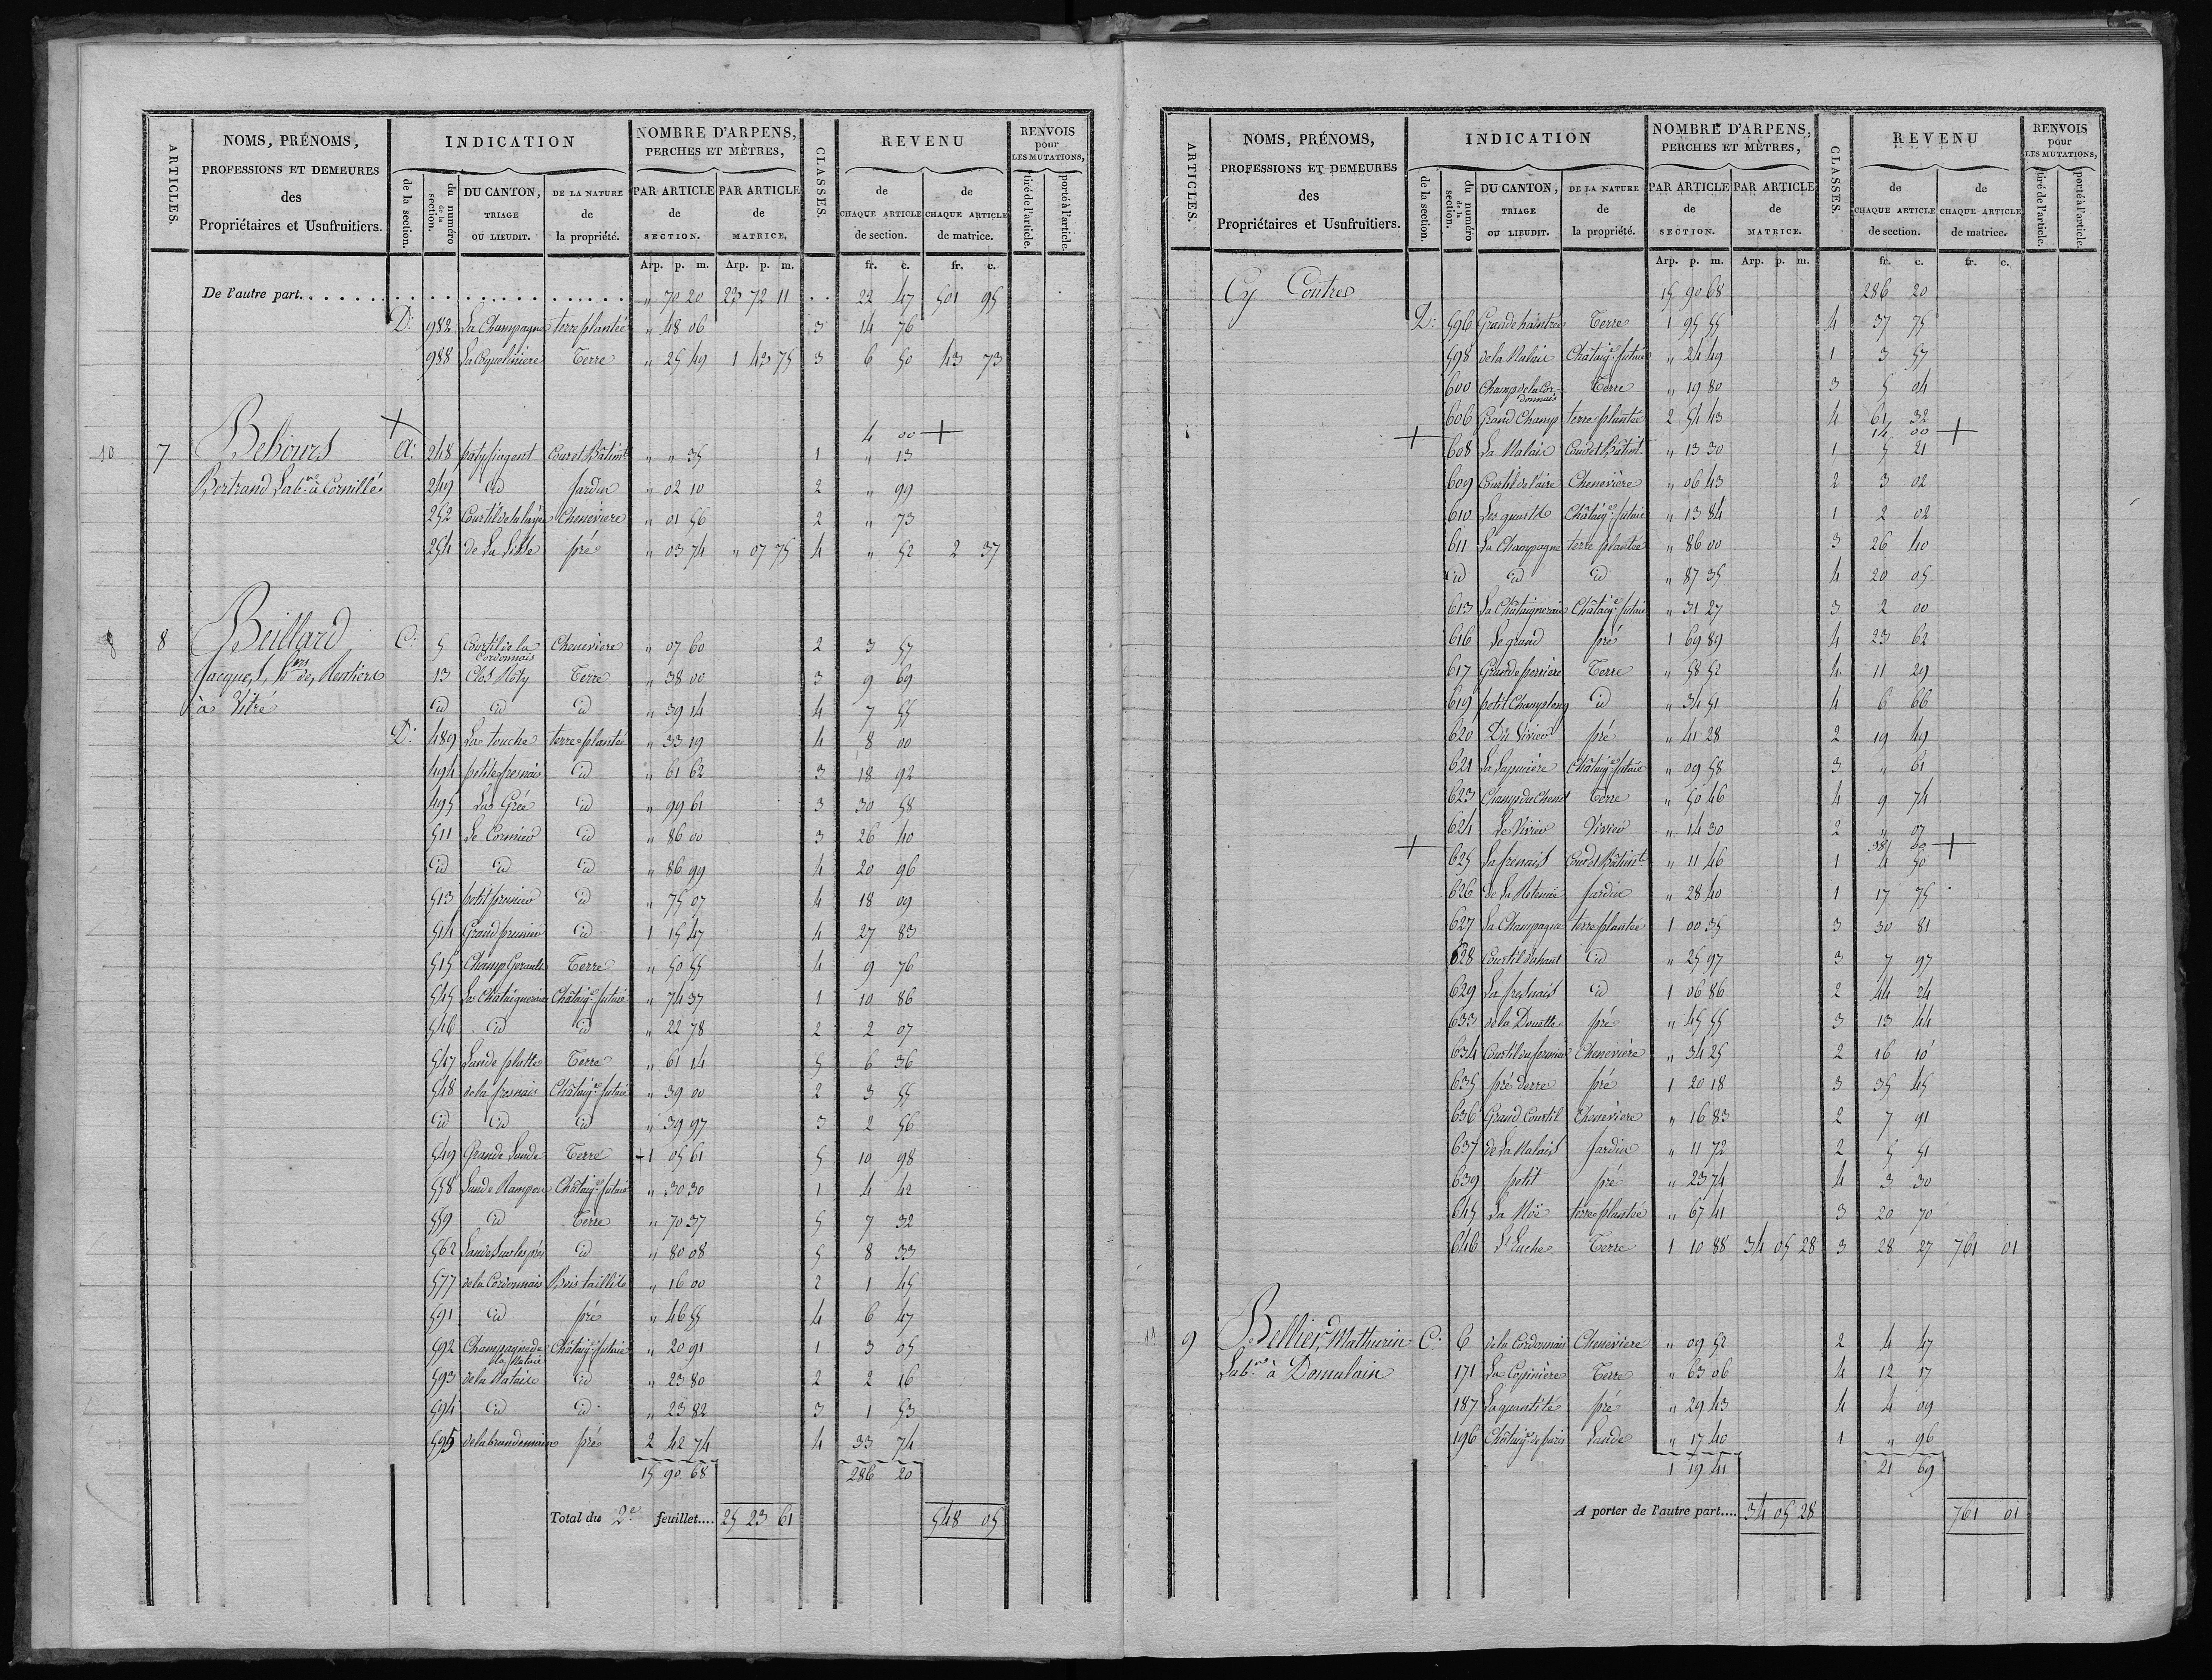 ARTICLES.
NOMS, PRÉNOMS,
PROFESSIONS ET DEMEURES
des
Propriétaires et Usufruitiers.
INDICATION
de la section.
du numéro de la section.
DU CANTON,
TRIAGE
OU LIEUDIT.
DE LA NATURE
de
la propriété.
NOMBRE D'ARPENS,
PERCHES ET MÈTRES,
PAR ARTICLE
de
SECTION.
PAR ARTICLE
de
MATRICE.
CLASSES.
REVENU
de
CHAQUE ARTICLE
de section.
de
CHAQUE ARTICLE
de matrice.
RENVOIS
pour
LES MUTATIONS,
tiré de l'article.
porté à l'article.
Arp. p. m. Arp. p. m. fr. c. fr. c.
De l'autre part. . . . . " 70 20 23 72 11 22 47 501 95
D. 982 La Champagne terre plantée " 48 06 3 14 76
988 Terre " 25 49 1 43 75 3 6 50 43 73
4 00 +
10 7 Behours + A. 248 Cour et Bâtimt " " 35 1 " 13
Bertrand Labr à Cornillé 249 id jardin " 02 10 2 " 99
252 Chenevière " 01 56 2 " 73
254 pré " 03 74 " 07 75 4 " 52 2 37
8 8 Beillard C. 5 Courtil de la Cordonnais Chenevière " 07 60 2 3 57
Jacques, Rentiers 13 Clos Terre " 38 00 3 9 69
à Vitré id id id " 39 14 4 7 55
D. 489 La touche terre plantée " 33 19 4 8 00
494 petite fresnais id " 61 62 3 18 92
495 La Grée id " 99 61 3 30 58
511 Le Cormier id " 86 00 3 26 40
id id id " 86 99 4 20 96
513 petit prunier id " 75 07 4 18 09
514 Grand prunier id 1 15 47 4 27 83
515 Champ Gerault Terre " 50 55 4 9 76
545 La Châtaigneraie Châtaige futaie " 74 37 1 10 86
546 id id " 22 78 2 2 07
547 Lande platte Terre " 61 14 5 6 36
548 de la fresnais Châtaige futaie " 39 00 2 3 55
id id id " 39 97 3 2 56
549 Grande Lande Terre 1 05 61 5 10 98
558 Lande Rampon Châtaige futaie " 30 30 1 4 42
559 id Terre " 70 37 5 7 32
562 Lande sur les prés id " 80 08 5 8 33
577 de la Cordonnais Bois taillis " 16 00 2 1 45
591 id pré " 46 55 4 6 47
592 Champagne de la Malaie Châtaige futaie " 20 91 1 3 05
593 de la Malaie id " 23 80 2 2 16
594 id id " 23 82 3 1 53
595 pré 2 42 74 4 33 74
15 90 68 286 20
Total du 2e feuillet.... 25 23 61 548 05
ARTICLES.
NOMS, PRÉNOMS,
PROFESSIONS ET DEMEURES
des
Propriétaires et Usufruitiers.
INDICATION
de la section.
du numéro de la section.
DU CANTON,
TRIAGE
OU LIEUDIT.
DE LA NATURE
de
la propriété.
NOMBRE D'ARPENS,
PERCHES ET MÈTRES,
PAR ARTICLE
de
SECTION.
PAR ARTICLE
de
MATRICE.
CLASSES.
REVENU
de
CHAQUE ARTICLE
de section.
de
CHAQUE ARTICLE
de matrice.
RENVOIS
pour
LES MUTATIONS,
tiré de l'article.
porté à l'article.
Arp. p. m. Arp. p. m. fr. c. fr. c.
Cy Contre 15 90 68 286 20
D. 596 Grande haintrée Terre 1 95 55 4 37 75
598 de la Malaie Châtaige futaie " 24 49 1 3 57
600 Champ de la Cordonnais Terre " 19 80 3 5 04
606 Grand Champ terre plantée 2 54 43 4 61 32
14 00 +
+ 608 La Malaie Cour et Bâtimt " 13 30 1 5 21
609 Courtil de l'aire Chenevière " 06 43 2 3 02
610 Châtaige futaie " 13 84 1 2 02
611 La Champagne terre plantée " 86 00 3 26 40
id id id " 87 35 4 20 05
613 La Châtaigneraie Châtaige futaie " 31 27 3 2 00
616 Le grand pré 1 69 89 4 23 62
617 Grande perrière Terre " 58 52 4 11 29
619 petit Champ long id " 34 51 4 6 66
620 Du Vivier pré " 41 28 2 19 49
621 La Lapinière Châtaige futaie " 09 58 3 " 61
623 Champ du Chenot Terre " 50 46 4 9 74
624 Le Vivier Vivier " 14 30 2 " 07
38 60 +
+ 625 La fresnais Cour et Bâtimt " 11 46 1 4 50
626 de la Retenue jardin " 28 40 1 17 75
627 La Champagne terre plantée 1 00 35 3 30 81
628 Courtil du haut id " 25 97 3 7 97
629 La fresnais id 1 06 86 2 44 24
633 de la Douette pré " 45 55 3 13 44
634 Courtil du prunier Chenevière " 34 25 2 16 10
635 pré derre pré 1 20 18 3 35 45
636 Grand Courtil Chenevière " 16 83 2 7 91
637 de la Malais jardin " 11 72 2 5 51
639 petit pré " 23 74 4 3 30
645 La Noë terre plantée " 67 41 3 20 70
646 Terre 1 10 88 34 05 28 3 28 27 761 01
11 9 Bellier, Mathurin C. 6 de la Cordonnais Chenevière " 09 52 2 4 47
Labr à Domalain 171 La Copinière Terre " 63 06 4 12 17
187 La quantité pré " 29 43 4 4 09
196 Châtaige de paris Lande " 17 40 1 " 96
1 19 41 21 69
A porter de l'autre part.... 34 05 28 761 01